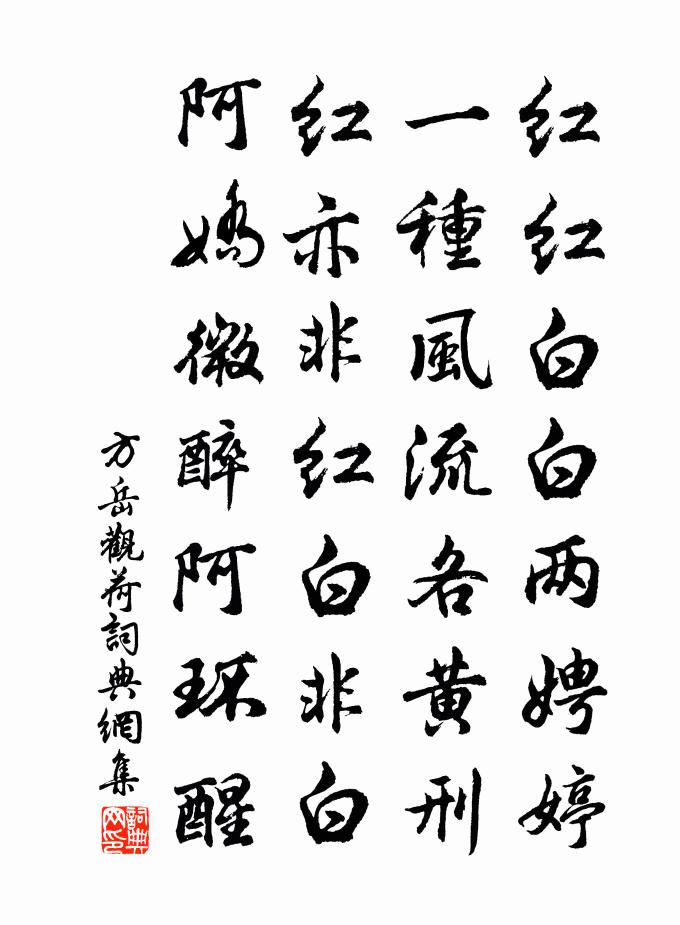 红红白白两娉婷
一種風流各黄刑
红亦非红白非白
阿嬌微醉阿环醒
方岳觀荷詞典網集
詞典网印